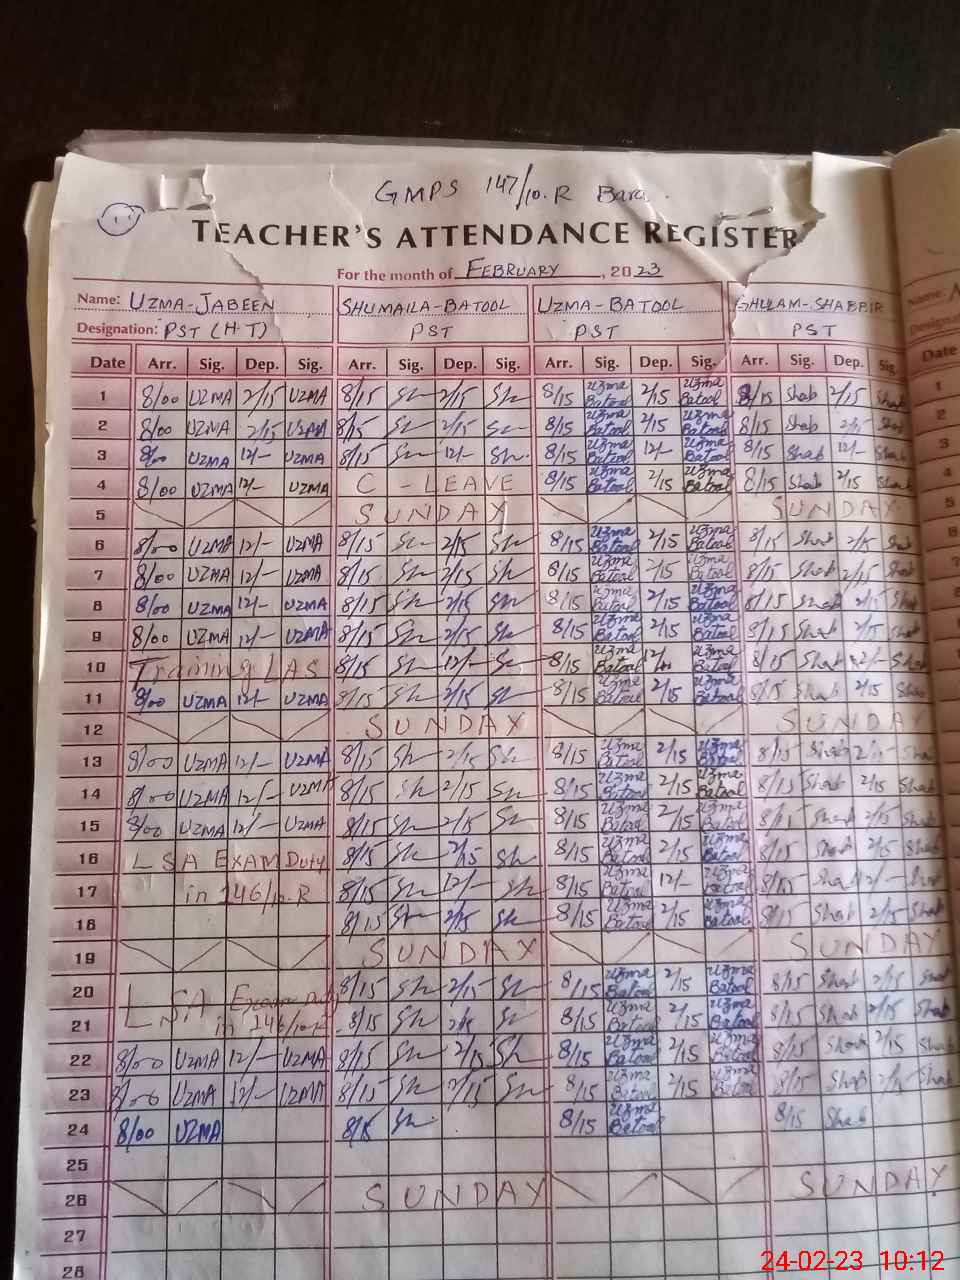 GMPS 147/10.R
TEACHER'S ATTENDANCE REGISTER
For the month of FEBRUARY, 2023
Name: UZMA-JABEEN SHUMAILA-BATOOL UZMA-BATOOL GHULAM-SHABBIR Name:
Designation: PST (H.T) PST PST PST
Date Arr. Sig. Dep. Sig. Arr. Sig. Dep. Sig. Arr. Sig. Dep. Sig. Arr. Sig. Dep. Sig. Date
1 8/00 UZMA 2/15 UZMA 8/15 Sh 2/15 Sh 8/15 Uzma Batool 2/15 Uzma Batool 8/15 Shab 2/15 Shab 1
2 8/00 UZMA 2/15 UZMA 8/15 Sh 2/15 Sh 8/15 Uzma Batool 2/15 Uzma Batool 8/15 Shab 2/15 Shab 2
3 8/00 UZMA 12/- UZMA 8/15 Sh 12/- Sh 8/15 Uzma Batool 12/- Uzma Batool 8/15 Shab 12/- Shab 3
4 8/00 UZMA 12/- UZMA C-LEAVE 8/15 Uzma Batool 2/15 Uzma Batool 8/15 Shab 2/15 Shab 4
5 SUNDAY SUNDAY 5
6 8/00 UZMA 12/- UZMA 8/15 Sh 2/15 Sh 8/15 Uzma Batool 2/15 Uzma Batool 8/15 Shab 2/15 Shab 6
7 8/00 UZMA 12/- UZMA 8/15 Sh 2/15 Sh 8/15 Uzma Batool 2/15 Uzma Batool 8/15 Shab 2/15 Shab
8 8/00 UZMA 12/- UZMA 8/15 Sh 2/15 Sh 8/15 Uzma Batool 2/15 Uzma Batool 8/15 Shab 2/15 Shab
9 8/00 UZMA 12/- UZMA 8/15 Sh 2/15 Sh 8/15 Uzma Batool 2/15 Uzma Batool 8/15 Shab 2/15 Shab
10 Training LAS 8/15 Sh 12/- Sh 8/15 Uzma Batool 12/- Uzma Batool 8/15 Shab 12/- Shab
11 8/00 UZMA 12/- UZMA 8/15 Sh 2/15 Sh 8/15 Uzma Batool 2/15 Uzma Batool 8/15 Shab 2/15 Shab
12 SUNDAY SUNDAY
13 8/00 UZMA 12/- UZMA 8/15 Sh 2/15 Sh 8/15 Uzma Batool 2/15 Uzma Batool 8/15 Shab 2/15 Shab
14 8/00 UZMA 12/- UZMA 8/15 Sh 2/15 Sh 8/15 Uzma Batool 2/15 Uzma Batool 8/15 Shab 2/15 Shab
15 8/00 UZMA 12/- UZMA 8/15 Sh 2/15 Sh 8/15 Uzma Batool 2/15 Uzma Batool 8/15 Shab 2/15 Shab
16 LSA EXAM Duty 8/15 Sh 2/15 Sh 8/15 Uzma Batool 2/15 Uzma Batool 8/15 Shab 2/15 Shab
17 in 146/10.R 8/15 Sh 12/- Sh 8/15 Uzma Batool 12/- Uzma Batool 8/15 Shab 12/- Shab
18 8/15 Sh 2/15 Sh 8/15 Uzma Batool 2/15 Uzma Batool 8/15 Shab 2/15 Shab
19 SUNDAY SUNDAY
20 LSA Exam Duty 8/15 Sh 2/15 Sh 8/15 Uzma Batool 2/15 Uzma Batool 8/15 Shab 2/15 Shab
21 in 146/10.R 8/15 Sh 2/15 Sh 8/15 Uzma Batool 2/15 Uzma Batool 8/15 Shab 2/15 Shab
22 8/00 UZMA 12/- UZMA 8/15 Sh 2/15 Sh 8/15 Uzma Batool 2/15 Uzma Batool 8/15 Shab 2/15 Shab
23 8/00 UZMA 12/- UZMA 8/15 Sh 2/15 Sh 8/15 Uzma Batool 2/15 Uzma Batool 8/15 Shab 2/15 Shab
24 8/00 UZMA 8/15 Sh 8/15 Uzma Batool 8/15 Shab
25
26 SUNDAY SUNDAY
27
28
24-02-23 10:12